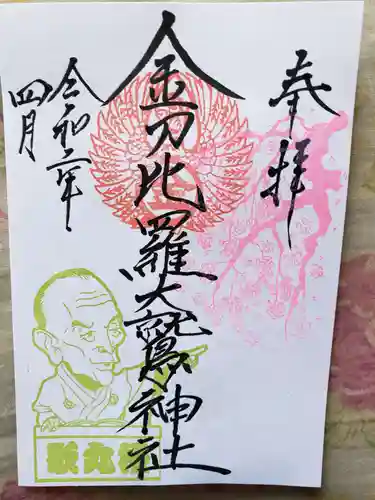 奉拝
金刀比羅大鷲神社
令和六年
四月